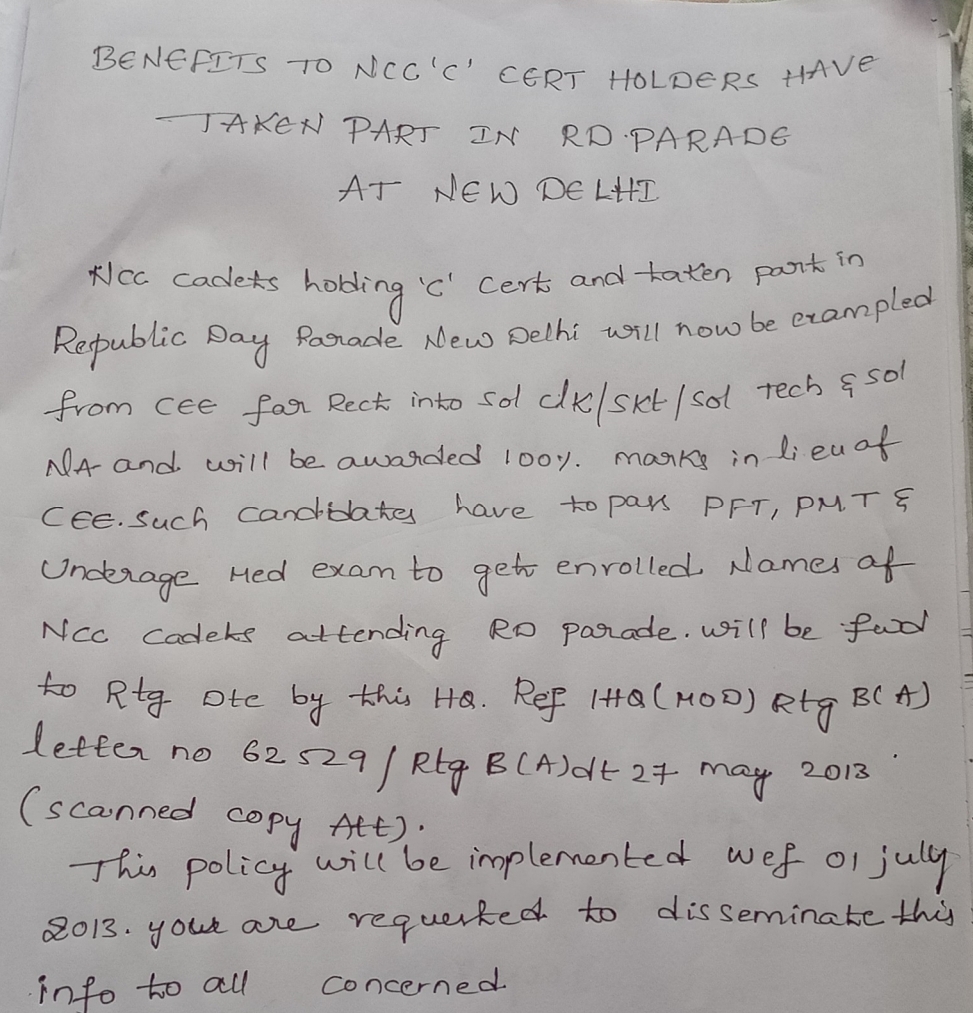 BENEFITS TO NCC 'C' CERT HOLDERS HAVE
TAKEN PART IN RD.PARADE
AT NEW DELHI
Ncc cadets holding 'c' Cert and taken part in
Republic Day Parade New Delhi will now be exampled
from CEE for Rect into Sol clk/SKt/Sol Tech & Sol
NA and will be awarded 100%. marks in lieu of
CEE. Such Candidates have to pass PFT, PMT &
Underage Med exam to get enrolled. Names of
Ncc Cadets attending RD parade. will be fwd
to Rtg Dte by this HQ. Ref IHQ (MOD) Rtg B(A)
letter no 62529/Rtg B(A)dt 27 may 2013
(scanned copy Att).
This policy will be implemented wef 01 july
2013. your are requested to disseminate this
info to all concerned